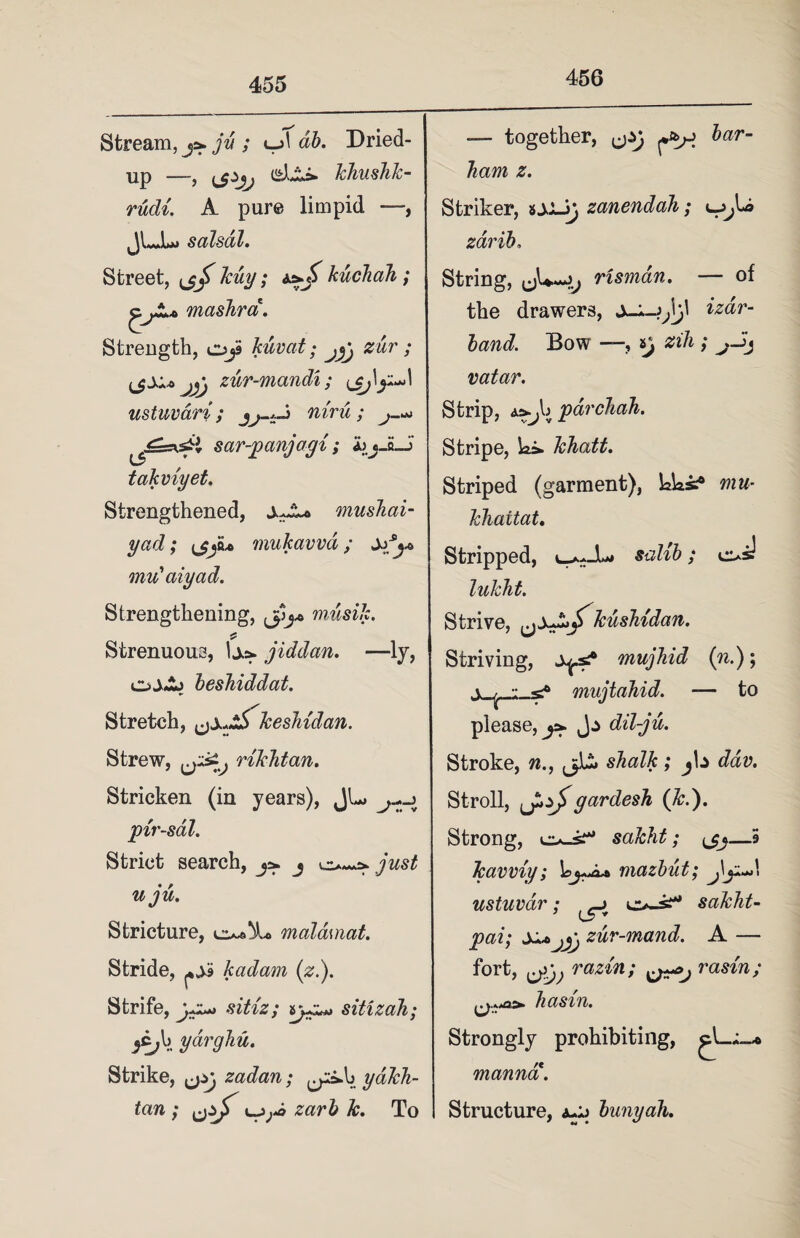 455
456
Stream, جو jú ; آب áb. Dried-
up —, خشک رودی khushk-
rúdí. A pure limpid —,
سلسال salsál.
Street, کوی kúy ; کوچه kúchah ;
مشرع mashra'.
Strength, قوت kúvat ; زور zúr ;
زور مندی zúr-mandí ; استواری
ustuvárí ; نیرو nírú ; سر
پنجگی sar-panjagí ; تقویة
takvíyet.
Strengthened, مشید mushai-
yad ; مقوی mukavvá ; مؤید
mu'aiyad.
Strengthening, موثق músik.
Strenuous, جدّا jiddan. —ly,
بشدت beshiddat.
Stretch, کشیدن keshídan.
Strew, ریختن ríkhtan.
Stricken (in years), پیر سال
pír-sál.
Strict search, جست و جو just
u jú.
Stricture, ملامت malámat.
Stride, قدم kadam (z.).
Strife, ستیز sitíz ; ستیزه sitízah ;
یارغو yárghú.
Strike, زدن zadan ; یاختن yákh-
tan ; ضرب کردن zarb k. To
— together, برهم زدن bar-
ham z.
Striker, زننده zanendah ; ضارب
zárib.
String, ریسمان rísmán. — of
the drawers, ازاربند izár-
band. Bow —, زه zih ; وتر
vatar.
Strip, پارچه párchah.
Stripe, خط khatt.
Striped (garment), مخطط mu-
khattat.
Stripped, سلیب salíb ; لخت
lukht.
Strive, کوشیدن kúshídan.
Striving, مجهد mujhid (n.) ;
مجتهد mujtahid. — to
please, دل جو dil-jú.
Stroke, n., شلق shalk ; داو dáv.
Stroll, گردش gardesh (k.).
Strong, سخت sakht ; قوی
kavviy ; مضبوط mazbút ; استوار
ustuvár ; سخت پی sakht-
pai ; زورمند zúr-mand. A —
fort, رزین razín ; رصین rasín ;
حصین hasín.
Strongly prohibiting, مناع
manná'.
Structure, بنیه bunyah.